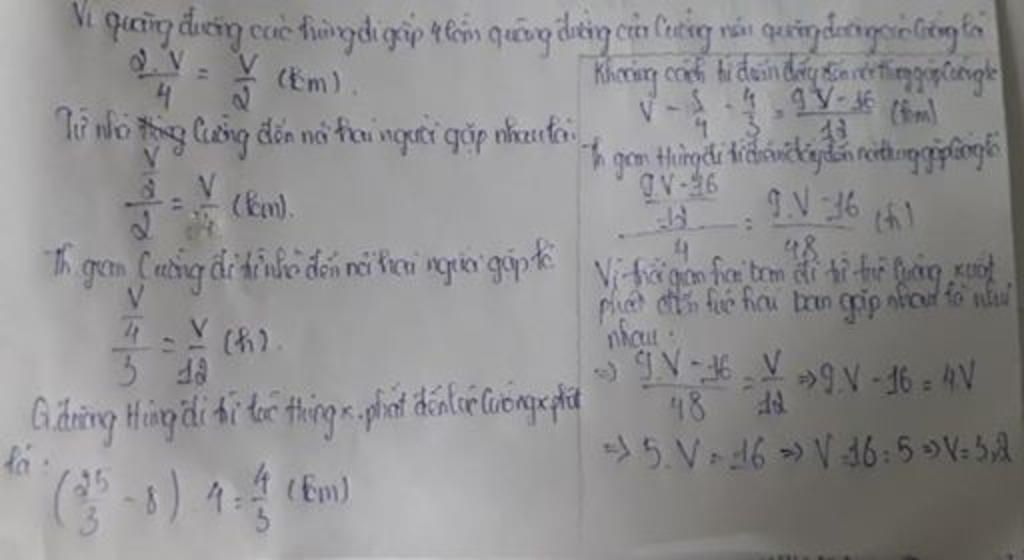 Vì quãng đường của Hùng đi gấp 4 lần quãng đường của Cường nên quãng đường của Cường là
2.V/4 = V/2 (km).
Từ nhà Cường đến nơi hai người gặp nhau là:
V/2/2 = V/4 (km).
Th gian Cường đi từ nhà đến nơi hai người gặp là
V/4/3 = V/12 (h).
Q.đường Hùng đi từ lúc Hùng x.phát đến lúc Cường x phát
là:
(25/3 - 8) . 4 = 4/3 (km)
Khoảng cách từ đến nơi Hùng gặp Cường là
V - 1/4 - 4/3 = 9V-16/12 (km)
Th gian Hùng đi từ đến nơi Hùng gặp Cường là
9V-16/12/4 = 9.V-16/48 (h)
Vì thời gian hai bạn đi từ Cường xuất
phát đến lúc hai bạn gặp nhau là như
nhau:
=> 9V-16/48 = V/12 => 9.V-16 = 4V
=> 5.V = 16 => V=16:5 => V=3,2